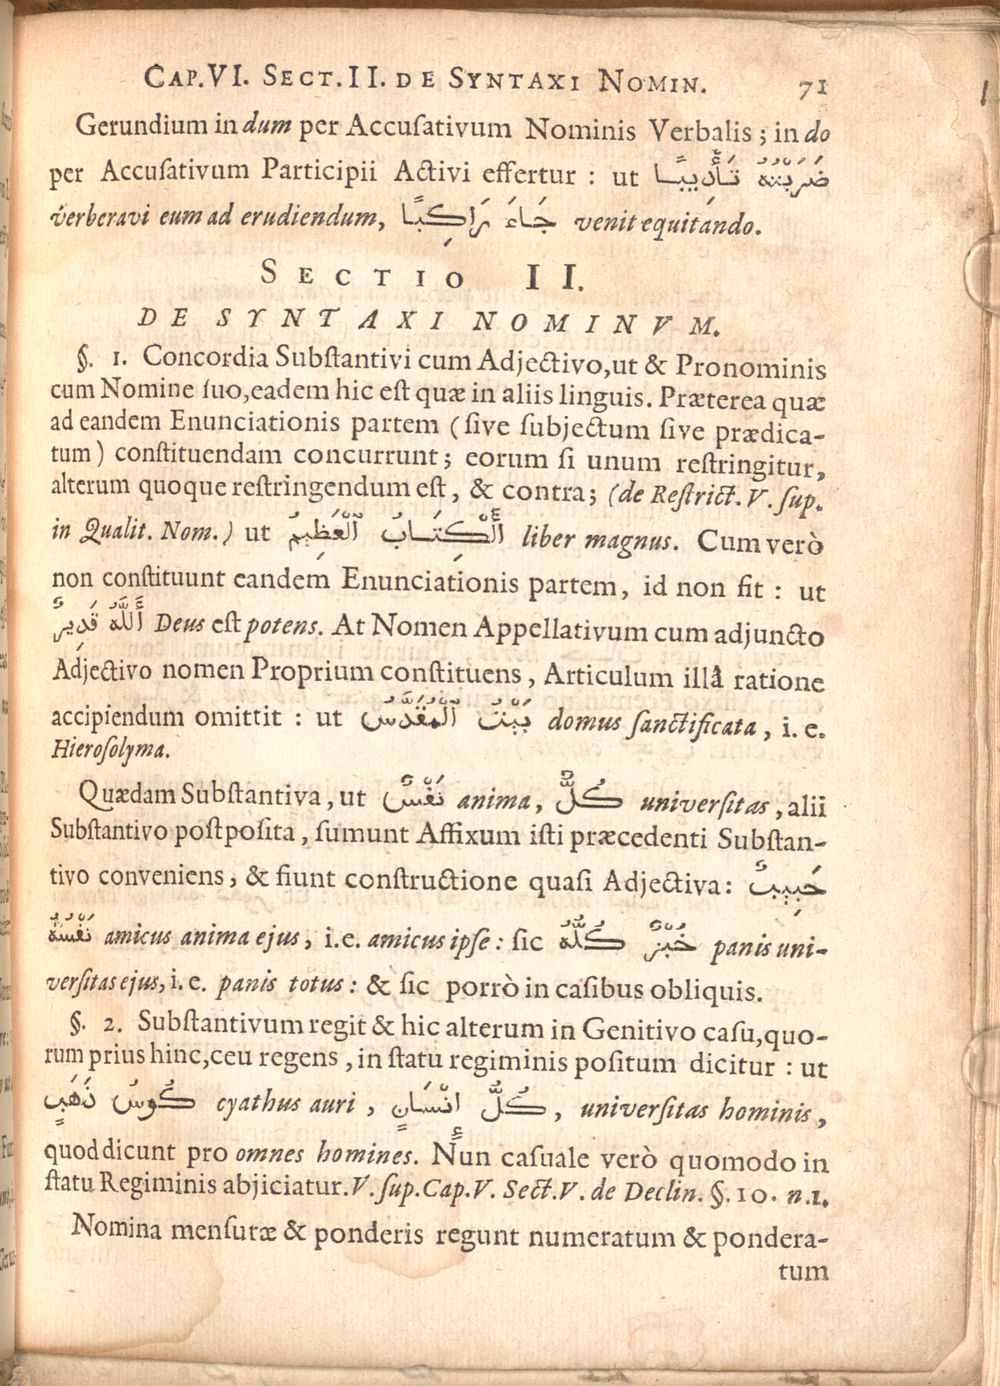 CAP.VI. SECT.II. DE SYNTAXI NOMIN. 71
Gerundium in dum per Accuſativum Nominis Verbalis; in do
per Accuſativum Participii Activi effertur : ut ضَرَبْتُهُ تَأْدِيبًا
verberavi eum ad erudiendum, جَاءَ رَاكِبًا venit equitando.
SECTIO II.
DE SYNTAXI NOMINVM.
§. 1. Concordia Subſtantivi cum Adjectivo,ut & Pronominis
cum Nomine ſuo,eadem hic eſt quæ in aliis linguis. Præterea quæ
ad eandem Enunciationis partem (ſive ſubjectum ſive prædica-
tum) conſtituendam concurrunt; eorum ſi unum reſtringitur,
alterum quoque reſtringendum eſt, & contra; (de Reſtrict. V. ſup.
in Qualit. Nom.) ut أَلْكِتَابُ ٱلْعَظِيمُ liber magnus. Cum verò
non conſtituunt eandem Enunciationis partem, id non fit : ut
أَللّٰهُ قَدِيرٌ Deus eſt potens. At Nomen Appellativum cum adjuncto
Adjectivo nomen Proprium conſtituens, Articulum illâ ratione
accipiendum omittit : ut بَيْتُ ٱلْمُقَدَّسُ domus ſanctificata, i. e.
Hieroſolyma.
Quædam Subſtantiva, ut نَفْسٌ anima, كُلٌّ univerſitas, alii
Subſtantivo poſtpoſita, ſumunt Affixum iſti præcedenti Subſtan-
tivo conveniens, & fiunt conſtructione quaſi Adjectiva: حَبِيبٌ
نَفْسُهُ amicus anima ejus, i.e. amicus ipſe: ſic خُبْزٌ كُلُّهُ panis uni-
verſitas ejus, i. e. panis totus: & ſic porrò in caſibus obliquis.
§. 2. Subſtantivum regit & hic alterum in Genitivo caſu,quo-
rum prius hinc,ceu regens, in ſtatu regiminis poſitum dicitur : ut
كُوسُ ذَهَبٍ cyathus auri, كُلُّ إِنْسَانٍ, univerſitas hominis,
quod dicunt pro omnes homines. Nun caſuale verò quomodo in
ſtatu Regiminis abjiciatur.V. ſup.Cap.V. Sect.V. de Declin. §. 10. n.1.
Nomina menſuræ & ponderis regunt numeratum & pondera-
tum